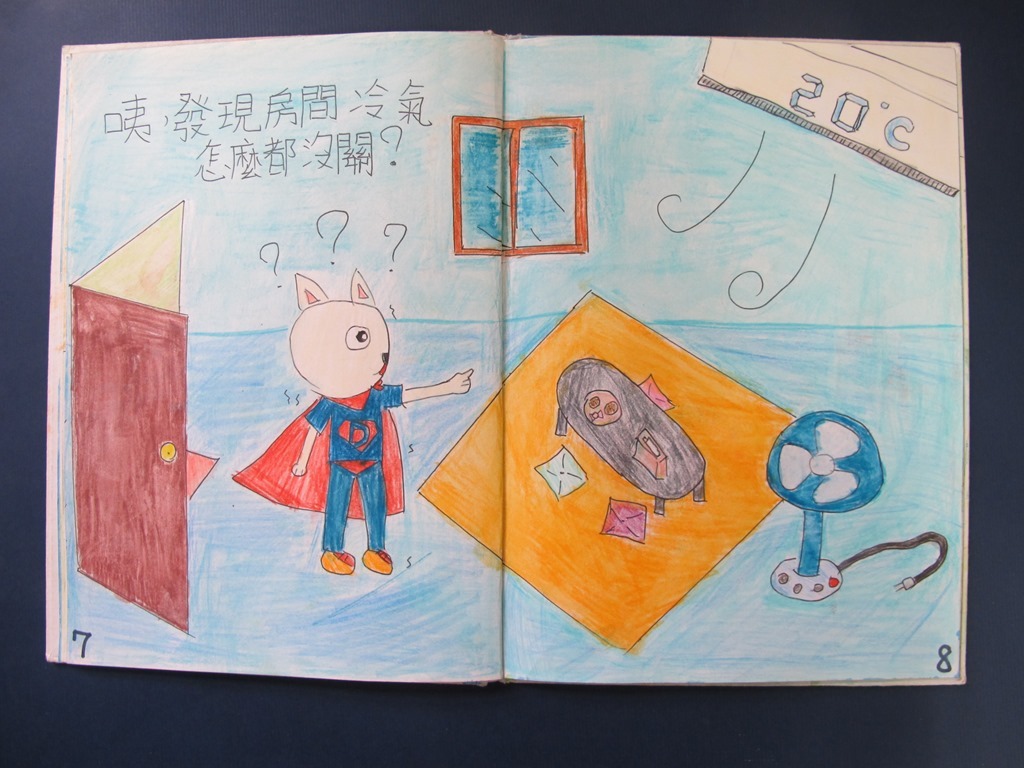 咦,發現房間冷氣
怎麼都沒關?
? ? ?
20°C
D
7
8